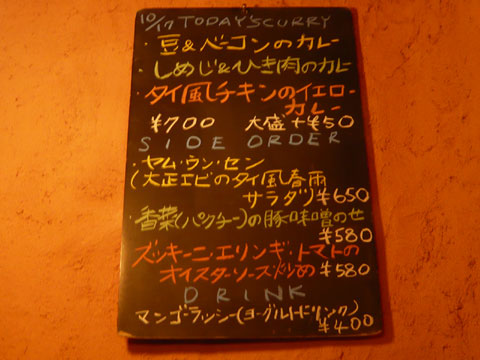 10/17 TODAYSCURRY
・豆&ベーコンのカレー
・しめじ&ひき肉のカレー
・タイ風チキンのイエロー
カレー
¥700 大盛+¥50
SIDE ORDER
・ヤム・ウン・セン
(大正エビのタイ風春雨
サラダ) ¥650
・香菜(パクチー)の豚味噌のせ
¥580
・ズッキーニ・エリンギ・トマトの
オイスターソース炒め ¥580
DRINK
マンゴーラッシー(ヨーグルトドリンク)
¥400